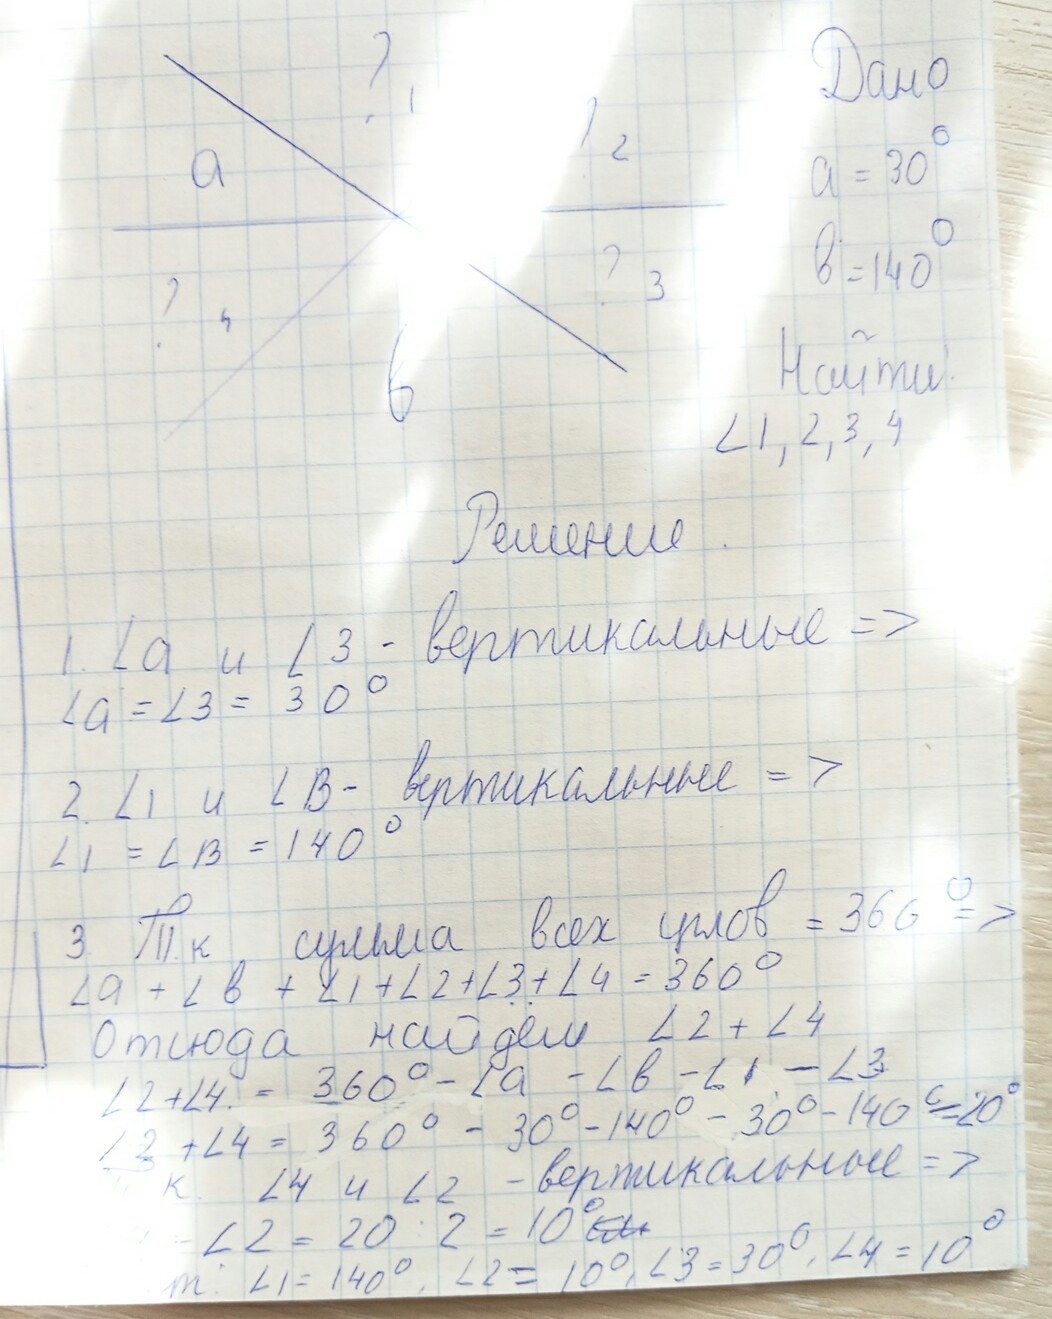 ? 1
Дано
? 2
a
a = 30°
? 3
в = 140°
? 4
в
Найти:
∠1, 2, 3, 4
Решение.
1. ∠a и ∠3 - вертикальные =>
∠a = ∠3 = 30°
2. ∠1 и ∠B - вертикальные =>
∠1 = ∠B = 140°
3. Т.к сумма всех углов = 360° =>
∠a + ∠в + ∠1 + ∠2 + ∠3 + ∠4 = 360°
Отсюда найдём ∠2 + ∠4
∠2 + ∠4 = 360° - ∠a - ∠в - ∠1 - ∠3
∠2 + ∠4 = 360° - 30° - 140° - 30° - 140° = 20°
к. ∠4 и ∠2 - вертикальные =>
∠2 = 20 : 2 = 10°
т: ∠1 = 140°, ∠2 = 10°, ∠3 = 30°, ∠4 = 10°